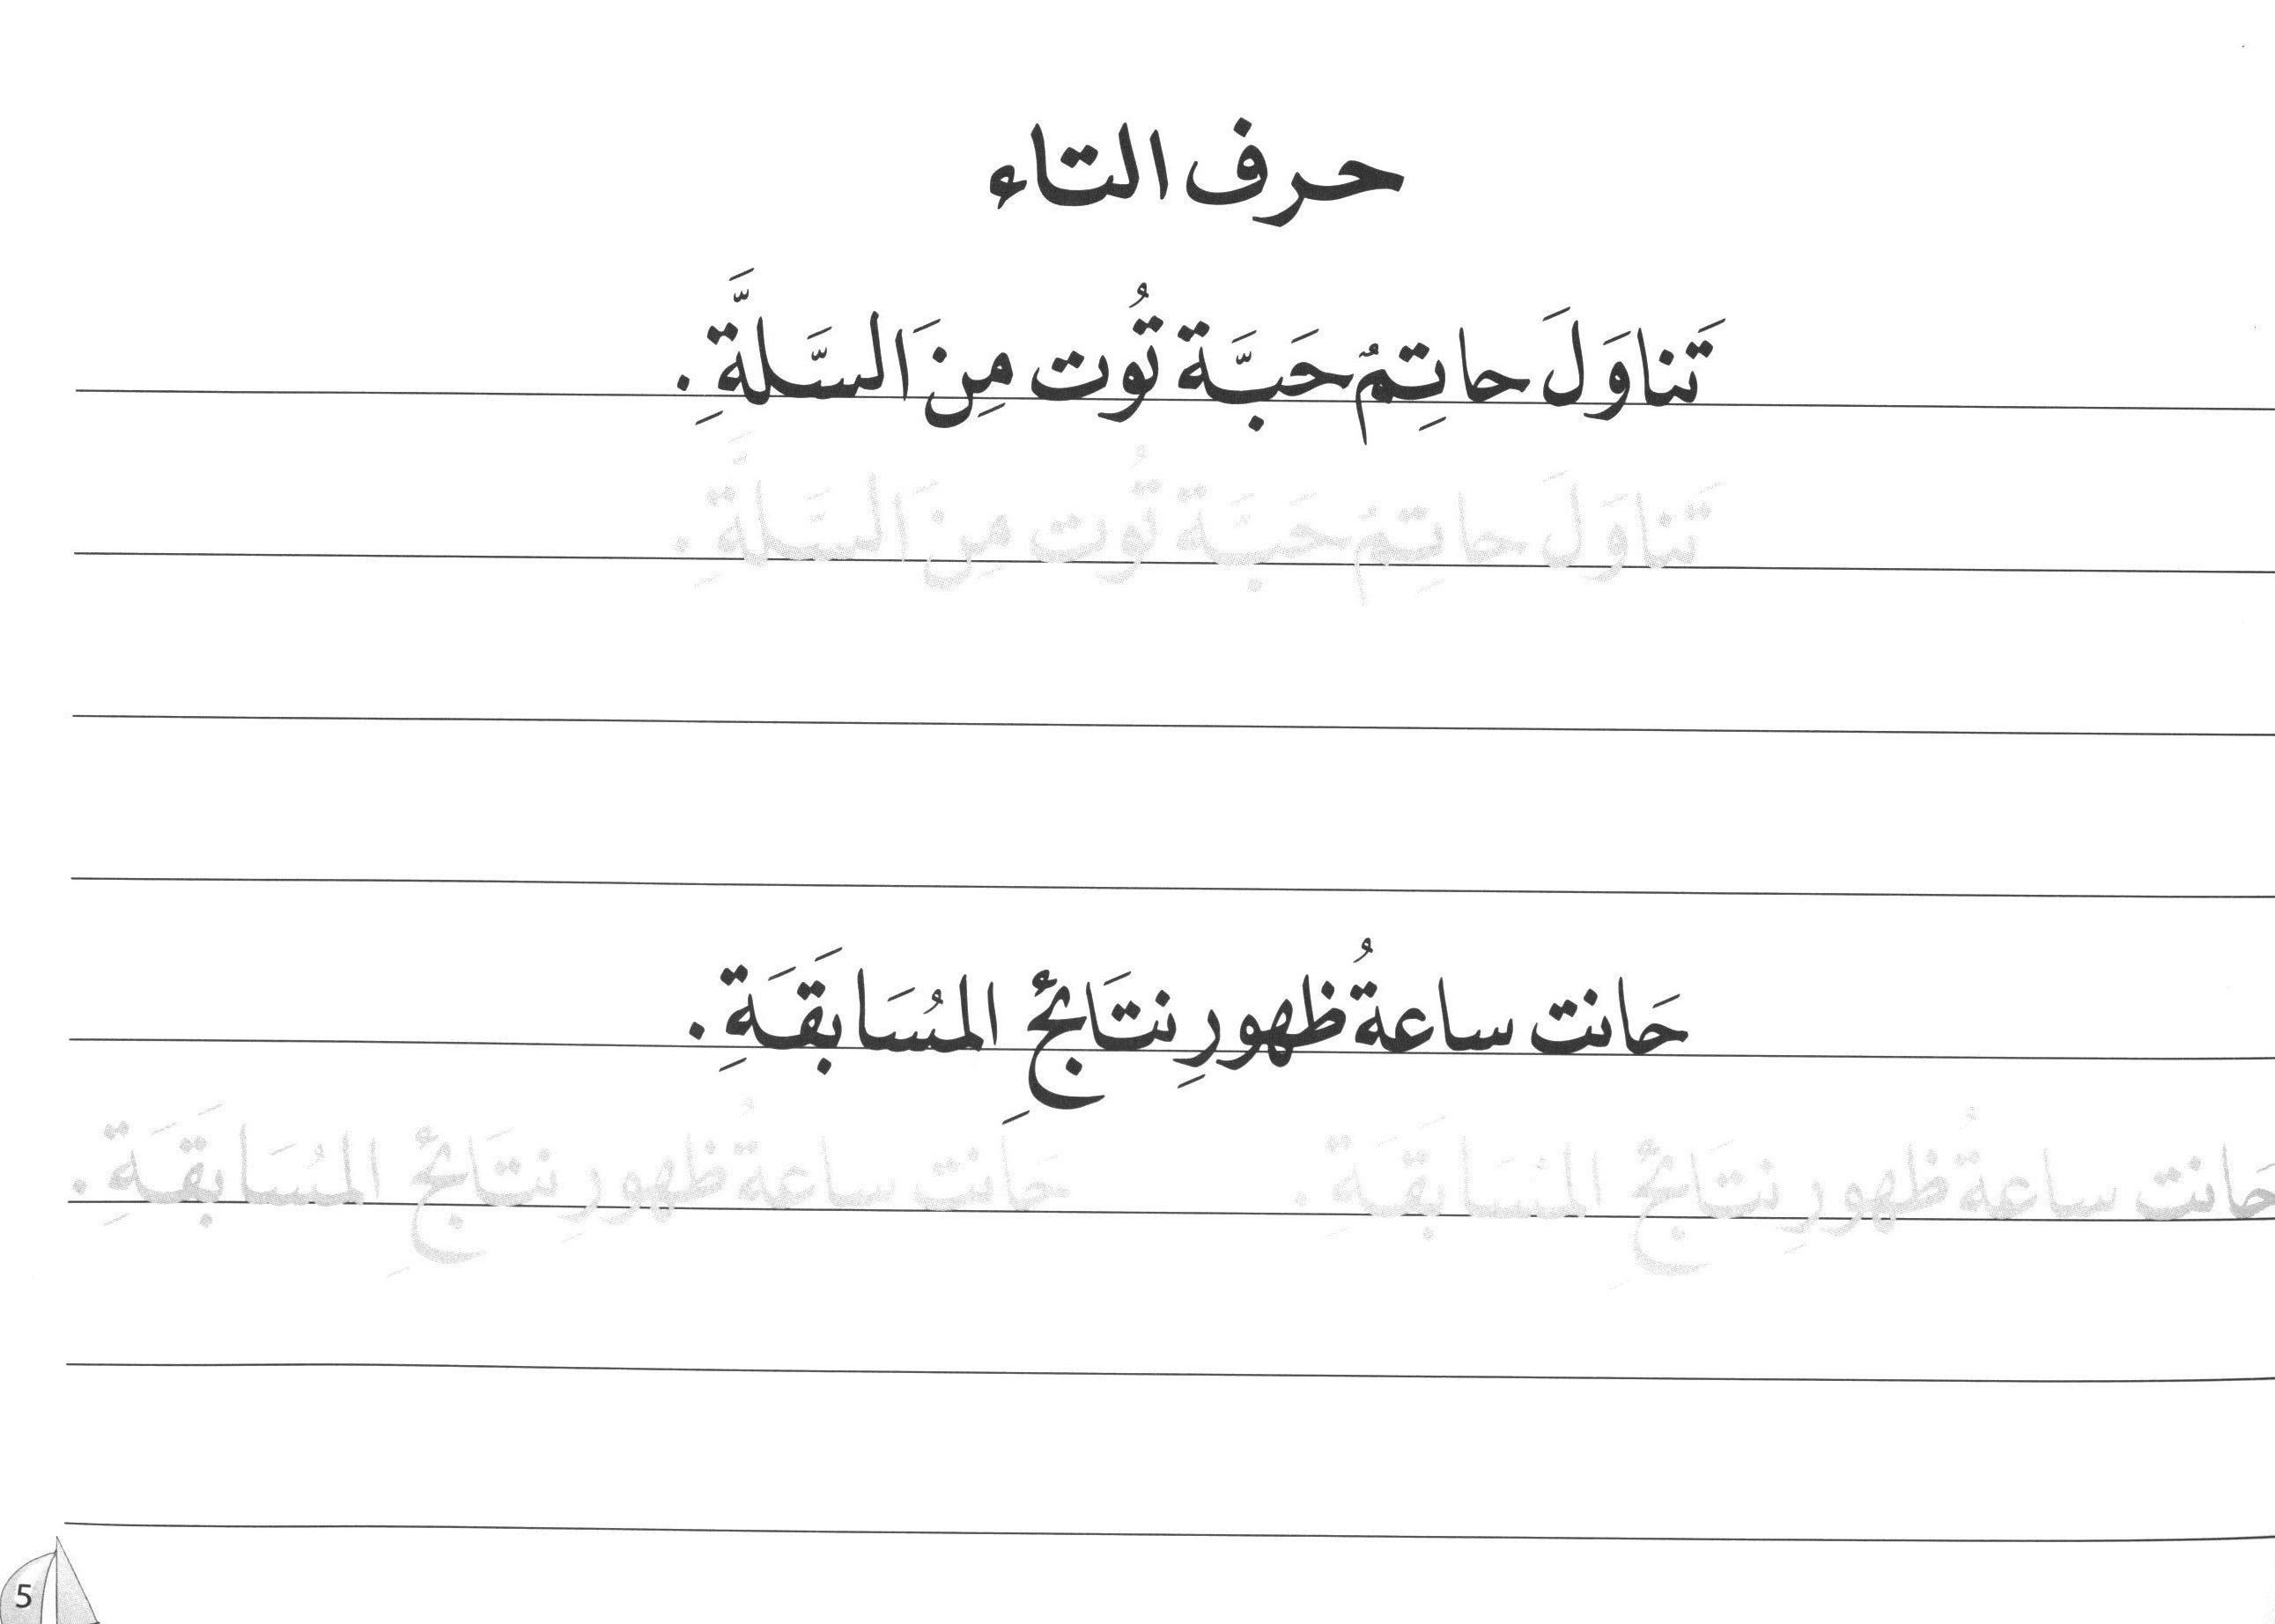 حرف التاء
تَناوَلَ حاتِمٌ حَبَّة تُوت مِنَ السَّلَّةِ.
تَناوَلَ حاتِمٌ حَبَّة تُوت مِنَ السَّلَّةِ.
حَانت ساعةُ ظهورِ نتَائجِ المسُابَقَةِ.
حَانت ساعةُ ظهورِ نتَائجِ المُسَابَقَةِ. حَانت ساعةُ ظهورِ نتَائجِ المُسَابَقَةِ.
5